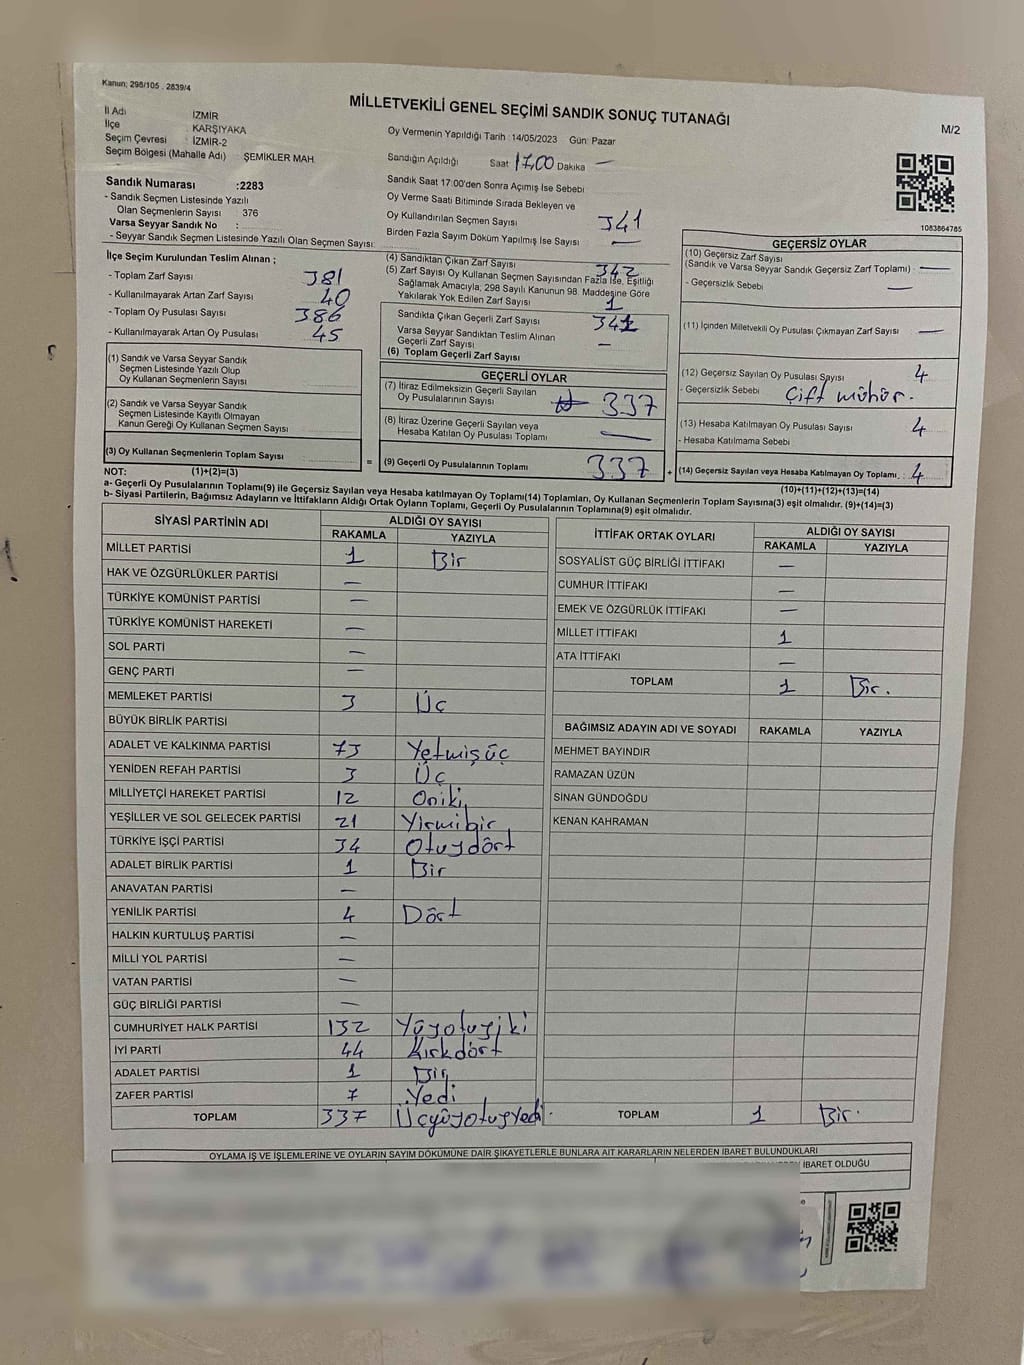 Kanun; 298/105 . 2839/4
MİLLETVEKİLİ GENEL SEÇİMİ SANDIK SONUÇ TUTANAĞI
M/2
İl Adı İZMİR
İlçe : KARŞIYAKA
Seçim Çevresi : İZMİR-2
Seçim Bölgesi (Mahalle Adı) ŞEMİKLER MAH.
Oy Vermenin Yapıldığı Tarih : 14/05/2023 Gün: Pazar
Sandığın Açıldığı Saat 17,00 Dakika —
Sandık Saat 17:00'den Sonra Açımış İse Sebebi
Oy Verme Saati Bitiminde Sırada Bekleyen ve
Oy Kullandırılan Seçmen Sayısı 341
Birden Fazla Sayım Döküm Yapılmış İse Sayısı —
1083864785
Sandık Numarası :2283
- Sandık Seçmen Listesinde Yazılı
Olan Seçmenlerin Sayısı : 376
Varsa Seyyar Sandık No :
- Seyyar Sandık Seçmen Listesinde Yazılı Olan Seçmen Sayısı:
İlçe Seçim Kurulundan Teslim Alınan ;
- Toplam Zarf Sayısı 381
- Kullanılmayarak Artan Zarf Sayısı 40
- Toplam Oy Pusulası Sayısı 386
- Kullanılmayarak Artan Oy Pusulası 45
(1) Sandık ve Varsa Seyyar Sandık
Seçmen Listesinde Yazılı Olup
Oy Kullanan Seçmenlerin Sayısı
(2) Sandık ve Varsa Seyyar Sandık
Seçmen Listesinde Kayıtlı Olmayan
Kanun Gereği Oy Kullanan Seçmen Sayısı
(3) Oy Kullanan Seçmenlerin Toplam Sayısı
(4) Sandıktan Çıkan Zarf Sayısı 342
(5) Zarf Sayısı Oy Kullanan Seçmen Sayısından Fazla İse, Eşitliği
Sağlamak Amacıyla, 298 Sayılı Kanunun 98. Maddesine Göre
Yakılarak Yok Edilen Zarf Sayısı 1
Sandıkta Çıkan Geçerli Zarf Sayısı 341
Varsa Seyyar Sandıktan Teslim Alınan
Geçerli Zarf Sayısı —
(6) Toplam Geçerli Zarf Sayısı
GEÇERLİ OYLAR
(7) İtiraz Edilmeksizin Geçerli Sayılan
Oy Pusulalarının Sayısı 337
(8) İtiraz Üzerine Geçerli Sayılan veya
Hesaba Katılan Oy Pusulası Toplamı —
= (9) Geçerli Oy Pusulalarının Toplamı 337 +
GEÇERSİZ OYLAR
(10) Geçersiz Zarf Sayısı
(Sandık ve Varsa Seyyar Sandık Geçersiz Zarf Toplamı) : —
- Geçersizlik Sebebi —
(11) İçinden Milletvekili Oy Pusulası Çıkmayan Zarf Sayısı —
(12) Geçersiz Sayılan Oy Pusulası Sayısı 4
- Geçersizlik Sebebi Çift mühür.
(13) Hesaba Katılmayan Oy Pusulası Sayısı 4
- Hesaba Katılmama Sebebi
(14) Geçersiz Sayılan veya Hesaba Katılmayan Oy Toplamı. : 4
NOT: (1)+(2)=(3) (10)+(11)+(12)+(13)=(14)
a- Geçerli Oy Pusulalarının Toplamı(9) ile Geçersiz Sayılan veya Hesaba katılmayan Oy Toplamı(14) Toplamları, Oy Kullanan Seçmenlerin Toplam Sayısına(3) eşit olmalıdır. (9)+(14)=(3)
b- Siyasi Partilerin, Bağımsız Adayların ve İttifakların Aldığı Ortak Oyların Toplamı, Geçerli Oy Pusulalarının Toplamına(9) eşit olmalıdır.
SİYASİ PARTİNİN ADI ALDIĞI OY SAYISI
RAKAMLA YAZIYLA
MİLLET PARTİSİ 1 Bir
HAK VE ÖZGÜRLÜKLER PARTİSİ —
TÜRKİYE KOMÜNİST PARTİSİ —
TÜRKİYE KOMÜNİST HAREKETİ —
SOL PARTİ —
GENÇ PARTİ —
MEMLEKET PARTİSİ 3 Üç
BÜYÜK BİRLİK PARTİSİ
ADALET VE KALKINMA PARTİSİ 73 Yetmişüç
YENİDEN REFAH PARTİSİ 3 Üç
MİLLİYETÇİ HAREKET PARTİSİ 12 Oniki
YEŞİLLER VE SOL GELECEK PARTİSİ 21 Yirmibir
TÜRKİYE İŞÇİ PARTİSİ 34 Otuzdört
ADALET BİRLİK PARTİSİ 1 Bir
ANAVATAN PARTİSİ —
YENİLİK PARTİSİ 4 Dört
HALKIN KURTULUŞ PARTİSİ —
MİLLİ YOL PARTİSİ —
VATAN PARTİSİ —
GÜÇ BİRLİĞİ PARTİSİ —
CUMHURİYET HALK PARTİSİ 132 Yüzotuziki
İYİ PARTİ 44 Kırkdört
ADALET PARTİSİ 1 Bir
ZAFER PARTİSİ 7 Yedi
TOPLAM 337 Üçyüzotuzyedi.
İTTİFAK ORTAK OYLARI ALDIĞI OY SAYISI
RAKAMLA YAZIYLA
SOSYALİST GÜÇ BİRLİĞİ İTTİFAKI —
CUMHUR İTTİFAKI —
EMEK VE ÖZGÜRLÜK İTTİFAKI —
MİLLET İTTİFAKI 1
ATA İTTİFAKI —
TOPLAM 1 Bir.
BAĞIMSIZ ADAYIN ADI VE SOYADI RAKAMLA YAZIYLA
MEHMET BAYINDIR
RAMAZAN ÜZÜN
SİNAN GÜNDOĞDU
KENAN KAHRAMAN
TOPLAM 1 Bir.
OYLAMA İŞ VE İŞLEMLERİNE VE OYLARIN SAYIM DÖKÜMÜNE DAİR ŞİKAYETLERLE BUNLARA AİT KARARLARIN NELERDEN İBARET BULUNDUKLARI
İBARET OLDUĞU